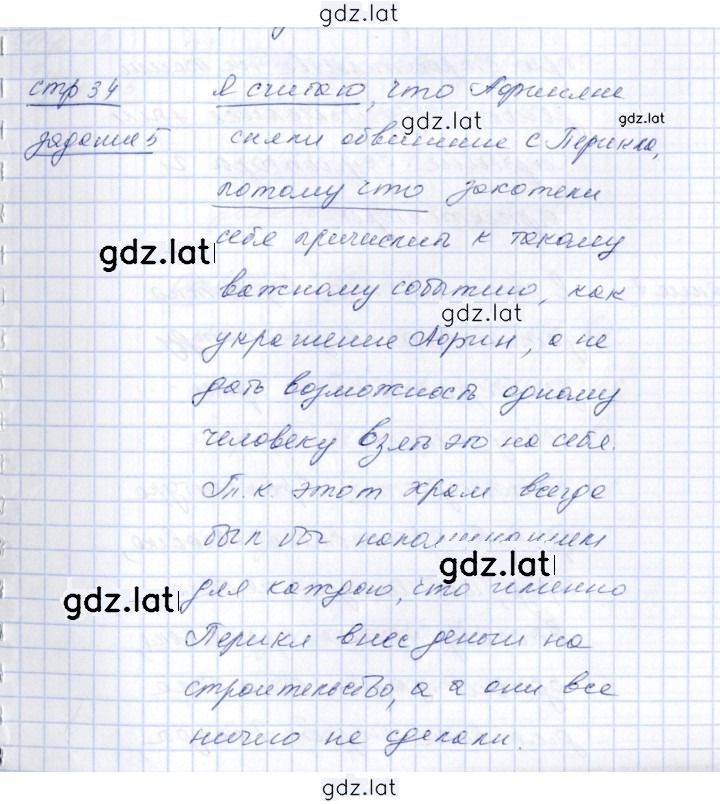 gdz.lat
стр 34 Я считаю, что Афиняне
gdz.lat gdz.lat
задание 5 сняли обвинение с Перикла,
потому что захотели
gdz.lat
себя причислить к такому
важному событию, как
gdz.lat
украшение Афин, а не
дать возможность одному
человеку взять это на себя.
Т.к. этот храм всегда
был бы напоминанием
gdz.lat
gdz.lat
для каждого, что именно
Перикл внес деньги на
строительство, а а они все
ничего не сделали.
gdz.lat